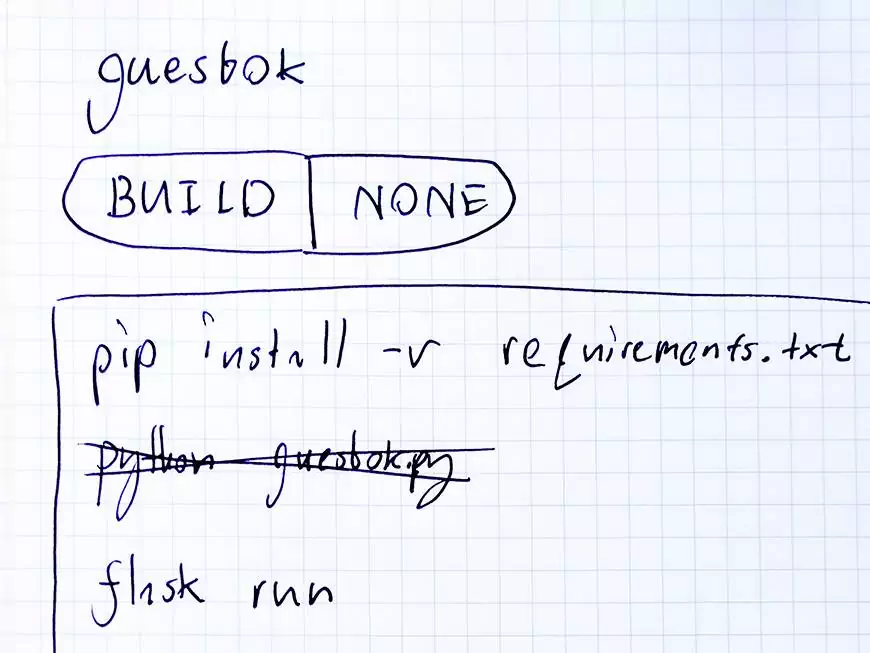 guesbok
BUILD NONE
pip install -r requirements.txt
python guesbok.py
flask run